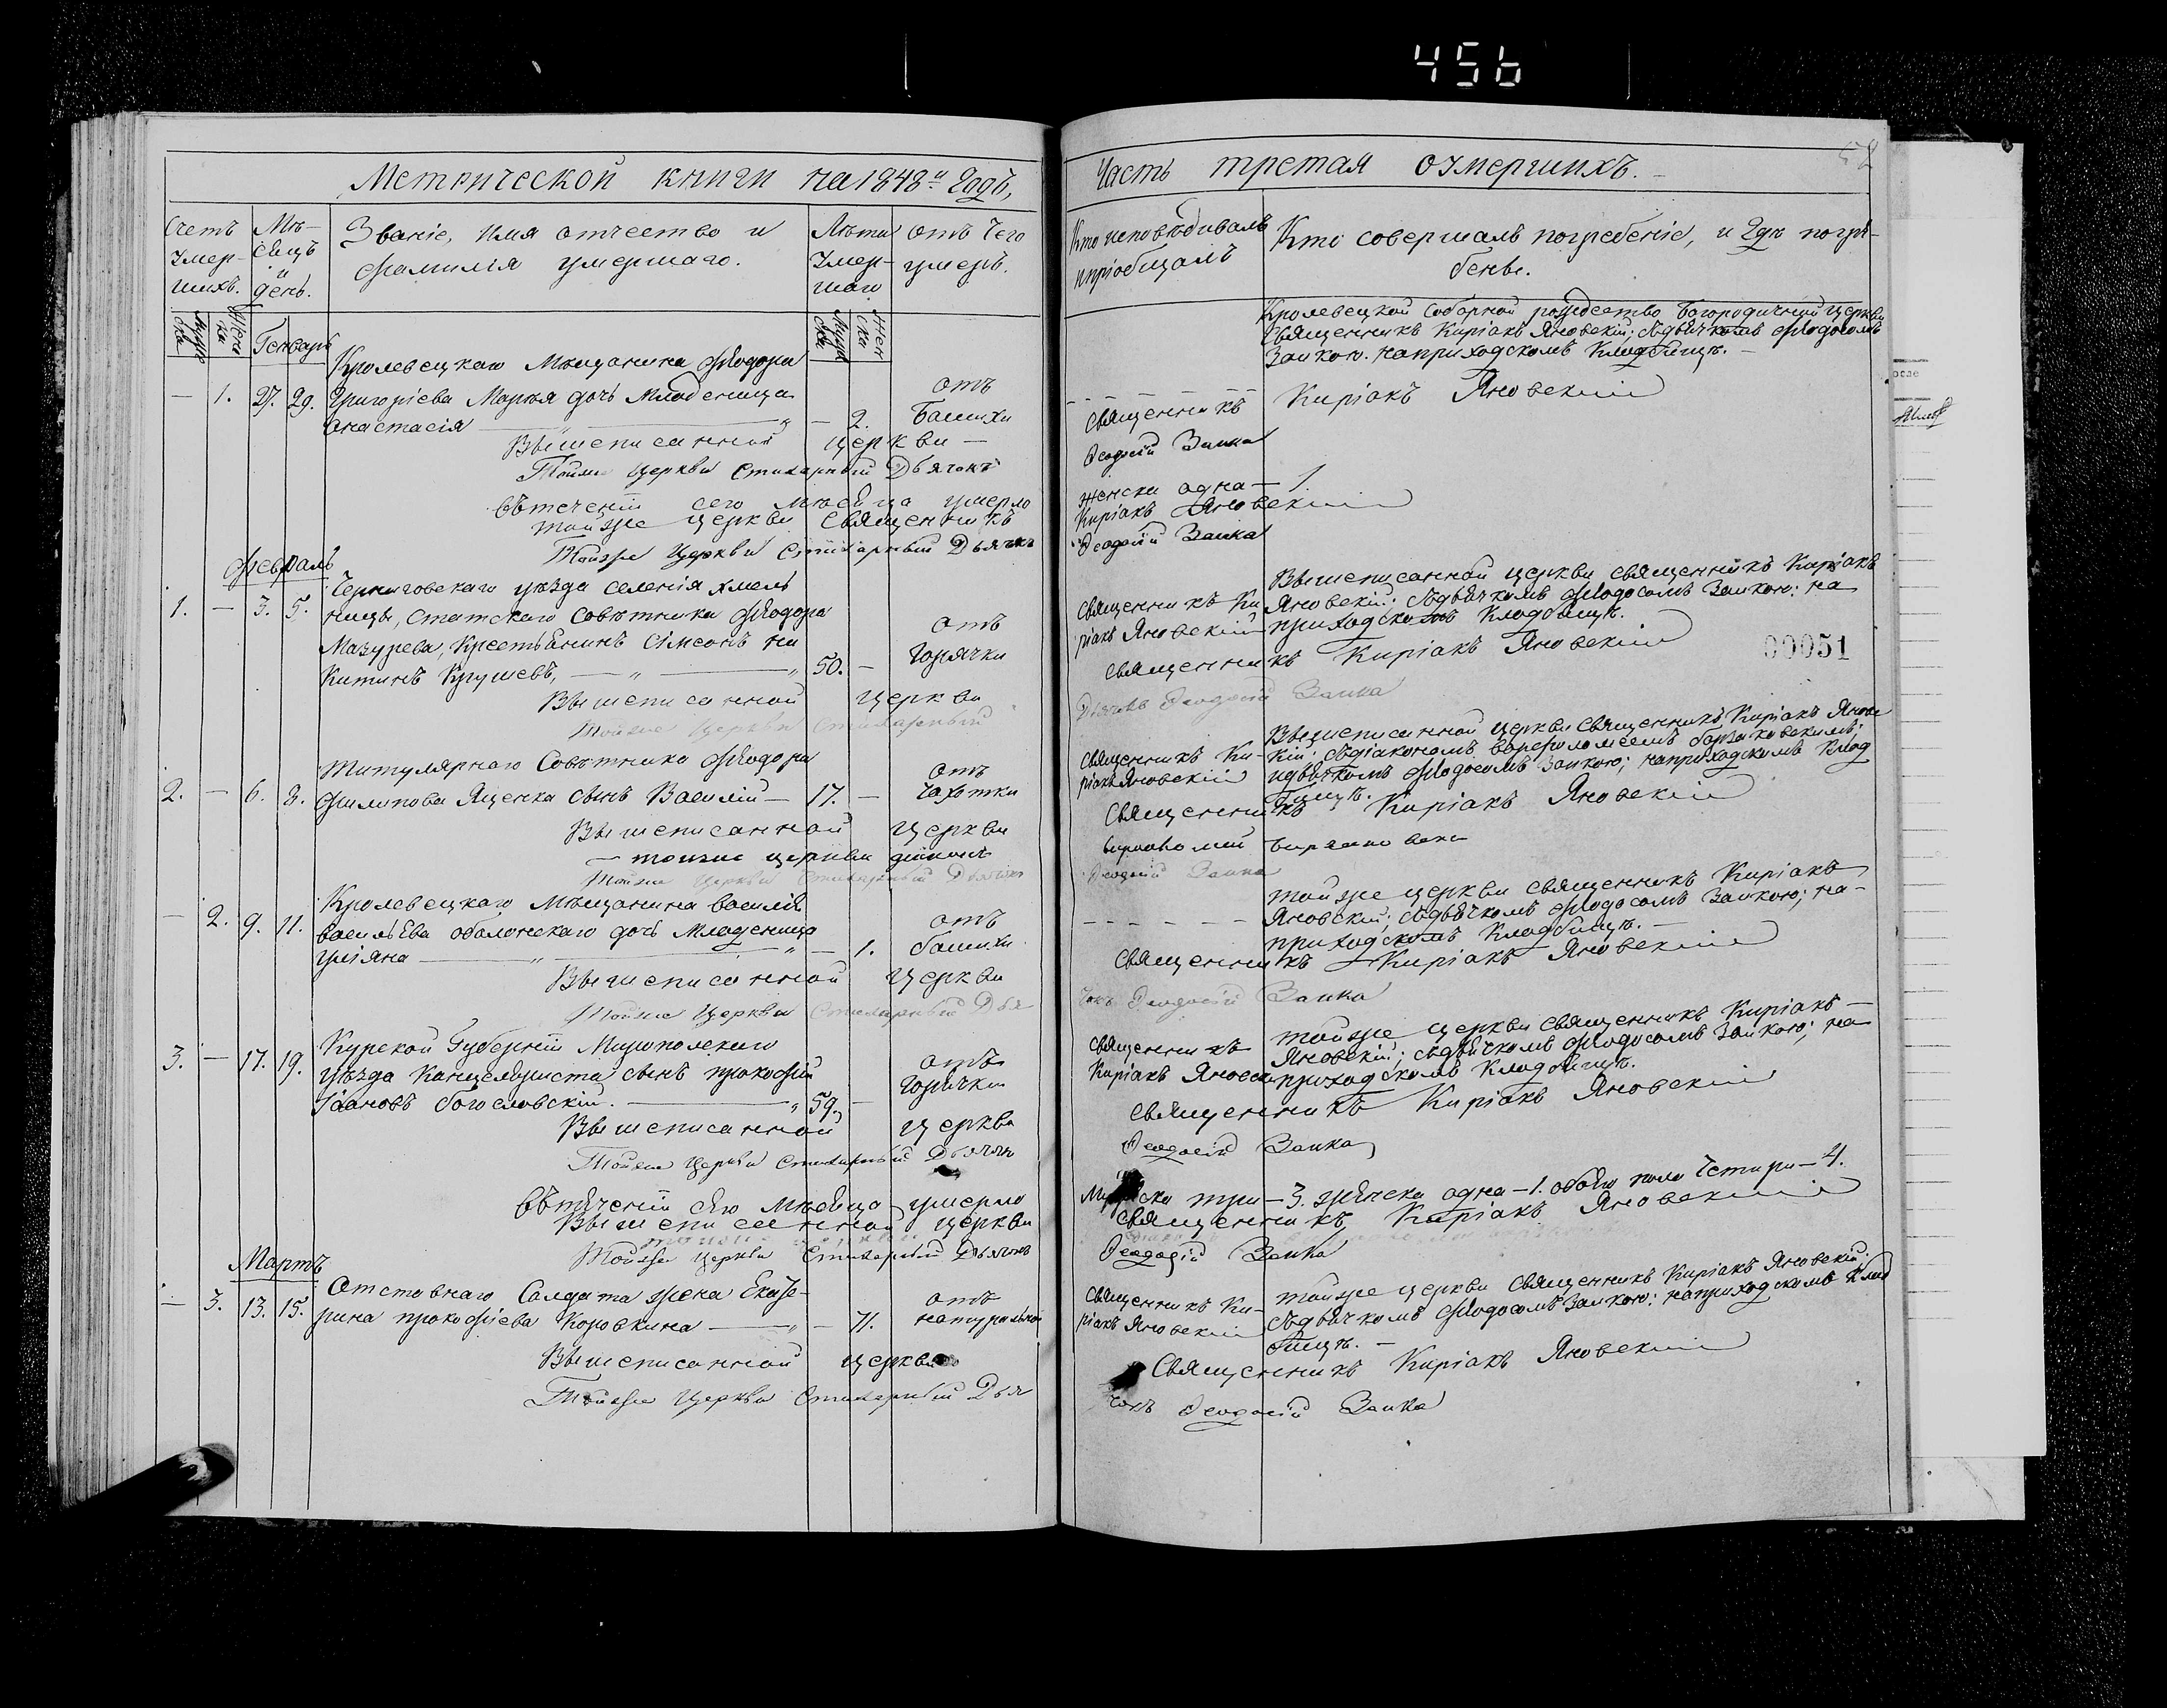 456
Метрической книги на 1848й Годъ,
Часть третая о умершихъ.
58
Счетъ Умер-шихъ.
Мѣ-сяцъ и день.
Званіе, Имя отчество и
фамилія умершаго.
Лѣта Умер-шаго
отъ Чего умеръ.
Кто исповѣдывалъ
и пріобщалъ
Кто совершалъ погребеніе, и Гдѣ погре-
бены.
Муже ска
Жен ска
Генварь
Муже ска
Жен ска
Кролевецкой Соборной рождество Богородичной Церкви
Священникъ Киріакъ Яновскій; съ дьячкомъ Фіодосомъ
Заикою. на приходскомъ Кладбищѣ. —
Кролевецкаго Мѣщанина Фіодора
— 1. 27. 29. Григоріева Маръя дочь Младеница
Анастасія — — 2.
отъ
Башихи
Вышеписанной Церкви — Священникъ Киріакъ Яновскій
Тойже Церкви Стихарный Дьячокъ Феодосій Заика
Въ теченіи сего мѣсяца умерло женска одна — 1.
тойже церкви Священникъ Киріакъ Яновскій
Тойже Церкви Стихарный Дьячокъ Феодосій Заика
Февраль
Черниговскаго уѣзда селенія Хмель
1. — 3. 5. ницы, Статскаго Совѣтника Фіодора
Мазурева, Крестьянинъ Симеонъ Ни
Китинъ Крушевъ, — 50. —
отъ
Горячки
Священникъ Ки
ріакъ Яновскій
Вышеписанной церкви Священникъ Киріакъ
Яновскій; съ дьячкомъ Фіодосомъ Заикою: на
приходскомъ Кладбищѣ.
00051
Вышеписанной Церкви Священникъ Киріакъ Яновскій
Тойже Церкви Стихарный Дьячокъ Феодосій Заика
Титулярнаго Совѣтника Фіодора
2. — 6. 8. Филипова Яценка сынъ Василій — 17. —
отъ
Чахотки
Священникъ Ки-
ріакъ Яновскій
Вышеписанной Церкви Священникъ Киріакъ Яновс
кій; съ діакономъ
и дьячкомъ Фіодосомъ Заикою; на приходскомъ Клад
бищѣ.
Вышеписанной Церкви Священникъ Киріакъ Яновскій
— тойже церкви діаконъ
Тойже Церкви Стихарный Дьячокъ Феодосій Заика
Кролевецкаго Мѣщанина Василія
— 2. 9. 11. Васильева Оболонскаго дочь Младеница
Уліяна — — 1.
отъ
башихи
тойже церкви Священникъ Киріакъ
Яновскій; съ дьячкомъ Фіодосомъ Заикою; на-
приходскомъ Кладбищѣ. —
Вышеписанной Церкви Священникъ Киріакъ Яновскій
Тойже Церкви Стихарный Дьячокъ Феодосій Заика
Курской Губерніи Миропольскаго
3. — 17. 19. уѣзда Канцеляриста сынъ Прокофій
Іоановъ Богословскій. — 59. —
отъ
Горячки
Священникъ
Киріакъ Яновскі
тойже церкви Священникъ Киріакъ —
Яновскій; съ дьячкомъ Фіодосомъ Заикою; на
приходскомъ Кладбищѣ.
Вышеписанной Церкви Священникъ Киріакъ Яновскій
Тойже Церкви Стихарный Дьячокъ Феодосій Заика
Въ теченіи сего Мѣсяца умерло Мужска три — 3. женска одна — 1. обоего пола Четыри — 4.
Вышеписанной церкви Священникъ Киріакъ Яновскій
Тойже Церкви Стихарный Дьячокъ Феодосій Заика
Мартъ
Отставнаго Салдата жена Екате-
— 3. 13. 15. рина Прокофіева Коровкина — — 71.
отъ
натуральной
Священникъ Ки-
ріакъ Яновскій
тойже церкви Священникъ Киріакъ Яновскій;
съ дьячкомъ Фіодосомъ Заикою: на приходскомъ Клад
бищѣ. —
Вышеписанной Церкви Священникъ Киріакъ Яновскій
Тойже Церкви Стихарный Дьячокъ Феодосій Заика